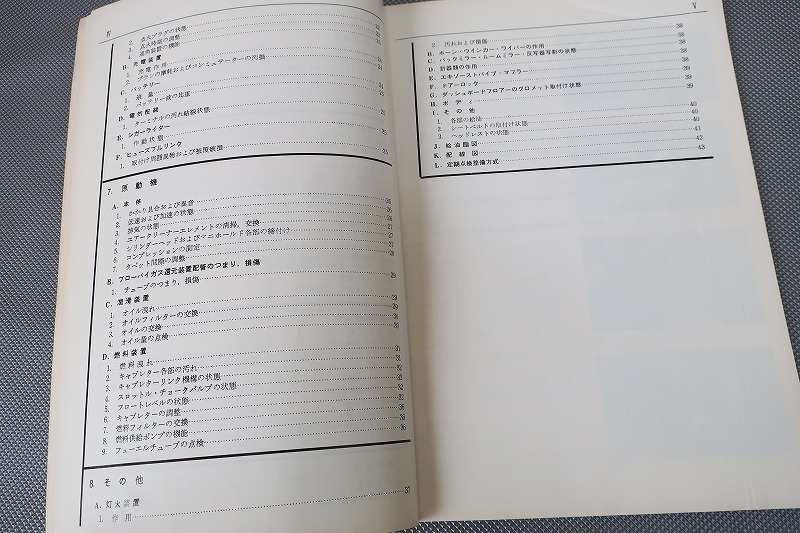 Ⅳ
2. 点火プラグの状態
3. 点火時期の調整
4. 進角装置の機能
B. 充電装置
1. 充電作用
2. ブラシの摩耗およびコンミュテーターの汚損
C. バッテリー
1. 液量
2. バッテリー液の比重
D. 電気配線
1. ターミナルの汚れ結線状態
E. シガーライター
1. 作動状態 25
F. ヒューズブルリンク
1. 取付け周囲異物および被覆破損 25
7. 原動機
A. 本体
1. かかり具合および異音 26
2. 低速および加速の状態 26
3. 排気の状態 26
4. エアークリーナーエレメントの清掃, 交換 27
5. シリンダーヘッドおよびマニホールド各部の締付け 27
6. コンプレッションの測定 27
7. タペット間隙の調整 28
B. ブローバイガス還元装置配管のつまり, 損傷
1. チューブのつまり, 損傷 29
C. 潤滑装置
1. オイル洩れ 29
2. オイルフィルターの交換 29
3. オイルの交換 30
4. オイル量の点検 30
D. 燃料装置
1. 燃料洩れ 31
2. キャブレター各部の汚れ 31
3. キャブレターリンク機構の状態 32
4. スロットル・チョークバルブの状態 32
5. フロートレベルの状態 32
6. キャブレターの調整 32
7. 燃料フィルターの交換 36
8. 燃料供給ポンプの機能 36
9. フューエルチューブの点検 36
8. その他
A. 灯火装置
1. 作用 37
Ⅴ
2. 汚れおよび損傷 38
B. ホーン・ウインカー・ワイパーの作用 38
C. バックミラー・ルームミラー・反写器写影の状態 38
D. 計器類の作用 38
E. エキゾーストパイプ・マフラー 39
F. ドアーロック 39
G. ダッシュボードフロアーのグロメット取付け状態 39
H. ボディ 39
I. その他
1. 各部の給油 40
2. シートベルトの取付け状態 40
3. ヘッドレストの状態 40
J. 給油脂図 41
K. 配線図 42
L. 定期点検整備方式 43